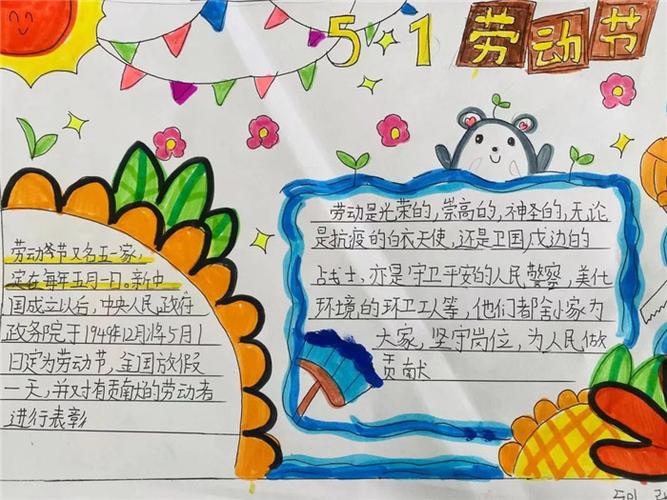 5·1 劳动节
劳动爷节又名五一家,
定在每年五月一日。新中
国成立以后,中央人民政府
政务院于1949年12月将5月1
日定为劳动节,全国放假
一天,并对有贡献的劳动者
进行表彰
劳动是光荣的,崇高的,神圣的,无论
是抗疫的白衣天使,还是卫国戍边的
战士,亦是守卫平安的人民警察,美化
环境的环卫工人等,他们都舍小家为
大家,坚守岗位,为人民做
贡献